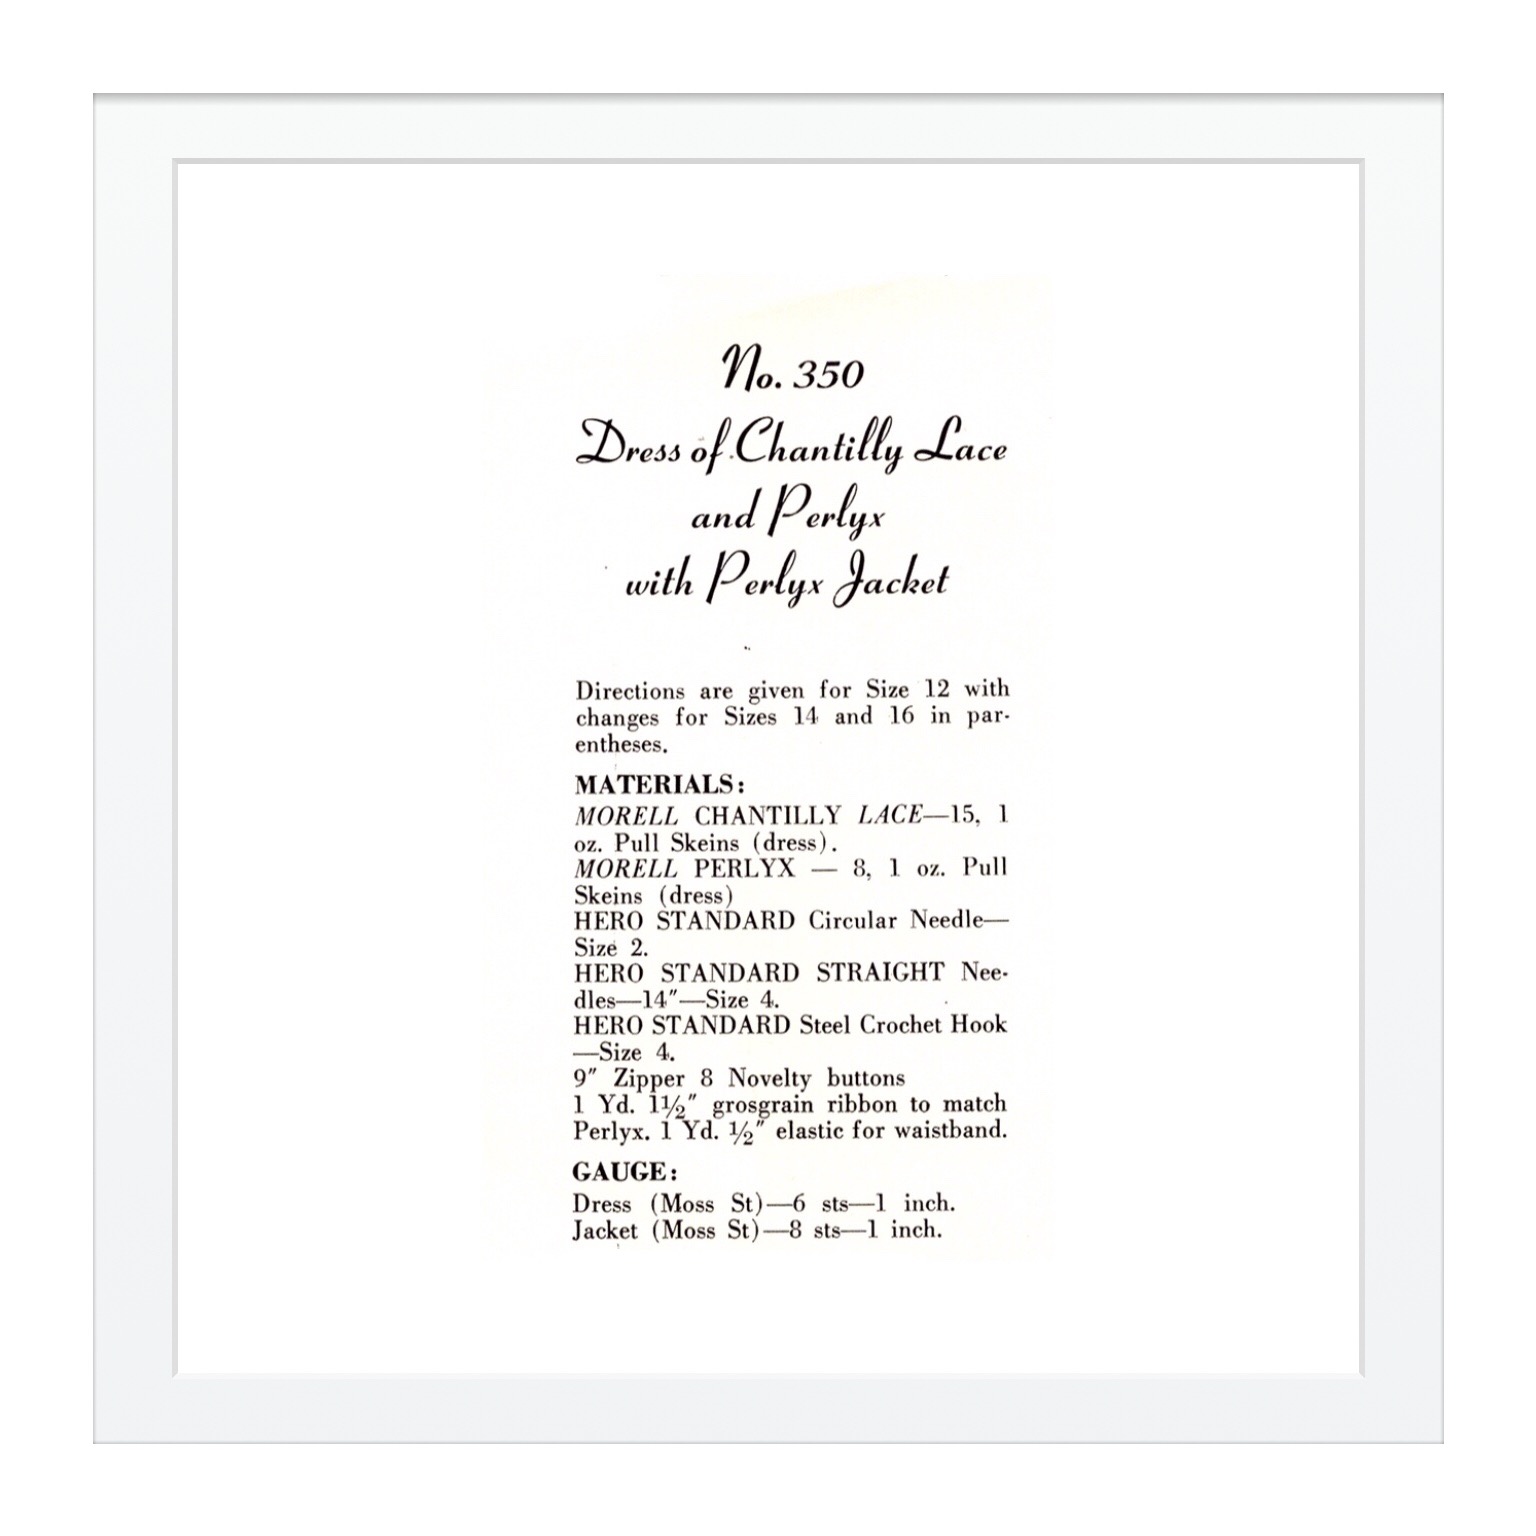 No. 350
Dress of Chantilly Lace
and Perlyx
with Perlyx Jacket
Directions are given for Size 12 with
changes for Sizes 14 and 16 in par-
entheses.
MATERIALS:
MORELL CHANTILLY LACE—15, 1
oz. Pull Skeins (dress).
MORELL PERLYX — 8, 1 oz. Pull
Skeins (dress)
HERO STANDARD Circular Needle—
Size 2.
HERO STANDARD STRAIGHT Nee-
dles—14″—Size 4.
HERO STANDARD Steel Crochet Hook
—Size 4.
9″ Zipper 8 Novelty buttons
1 Yd. 1½″ grosgrain ribbon to match
Perlyx. 1 Yd. ½″ elastic for waistband.
GAUGE:
Dress (Moss St)—6 sts—1 inch.
Jacket (Moss St)—8 sts—1 inch.